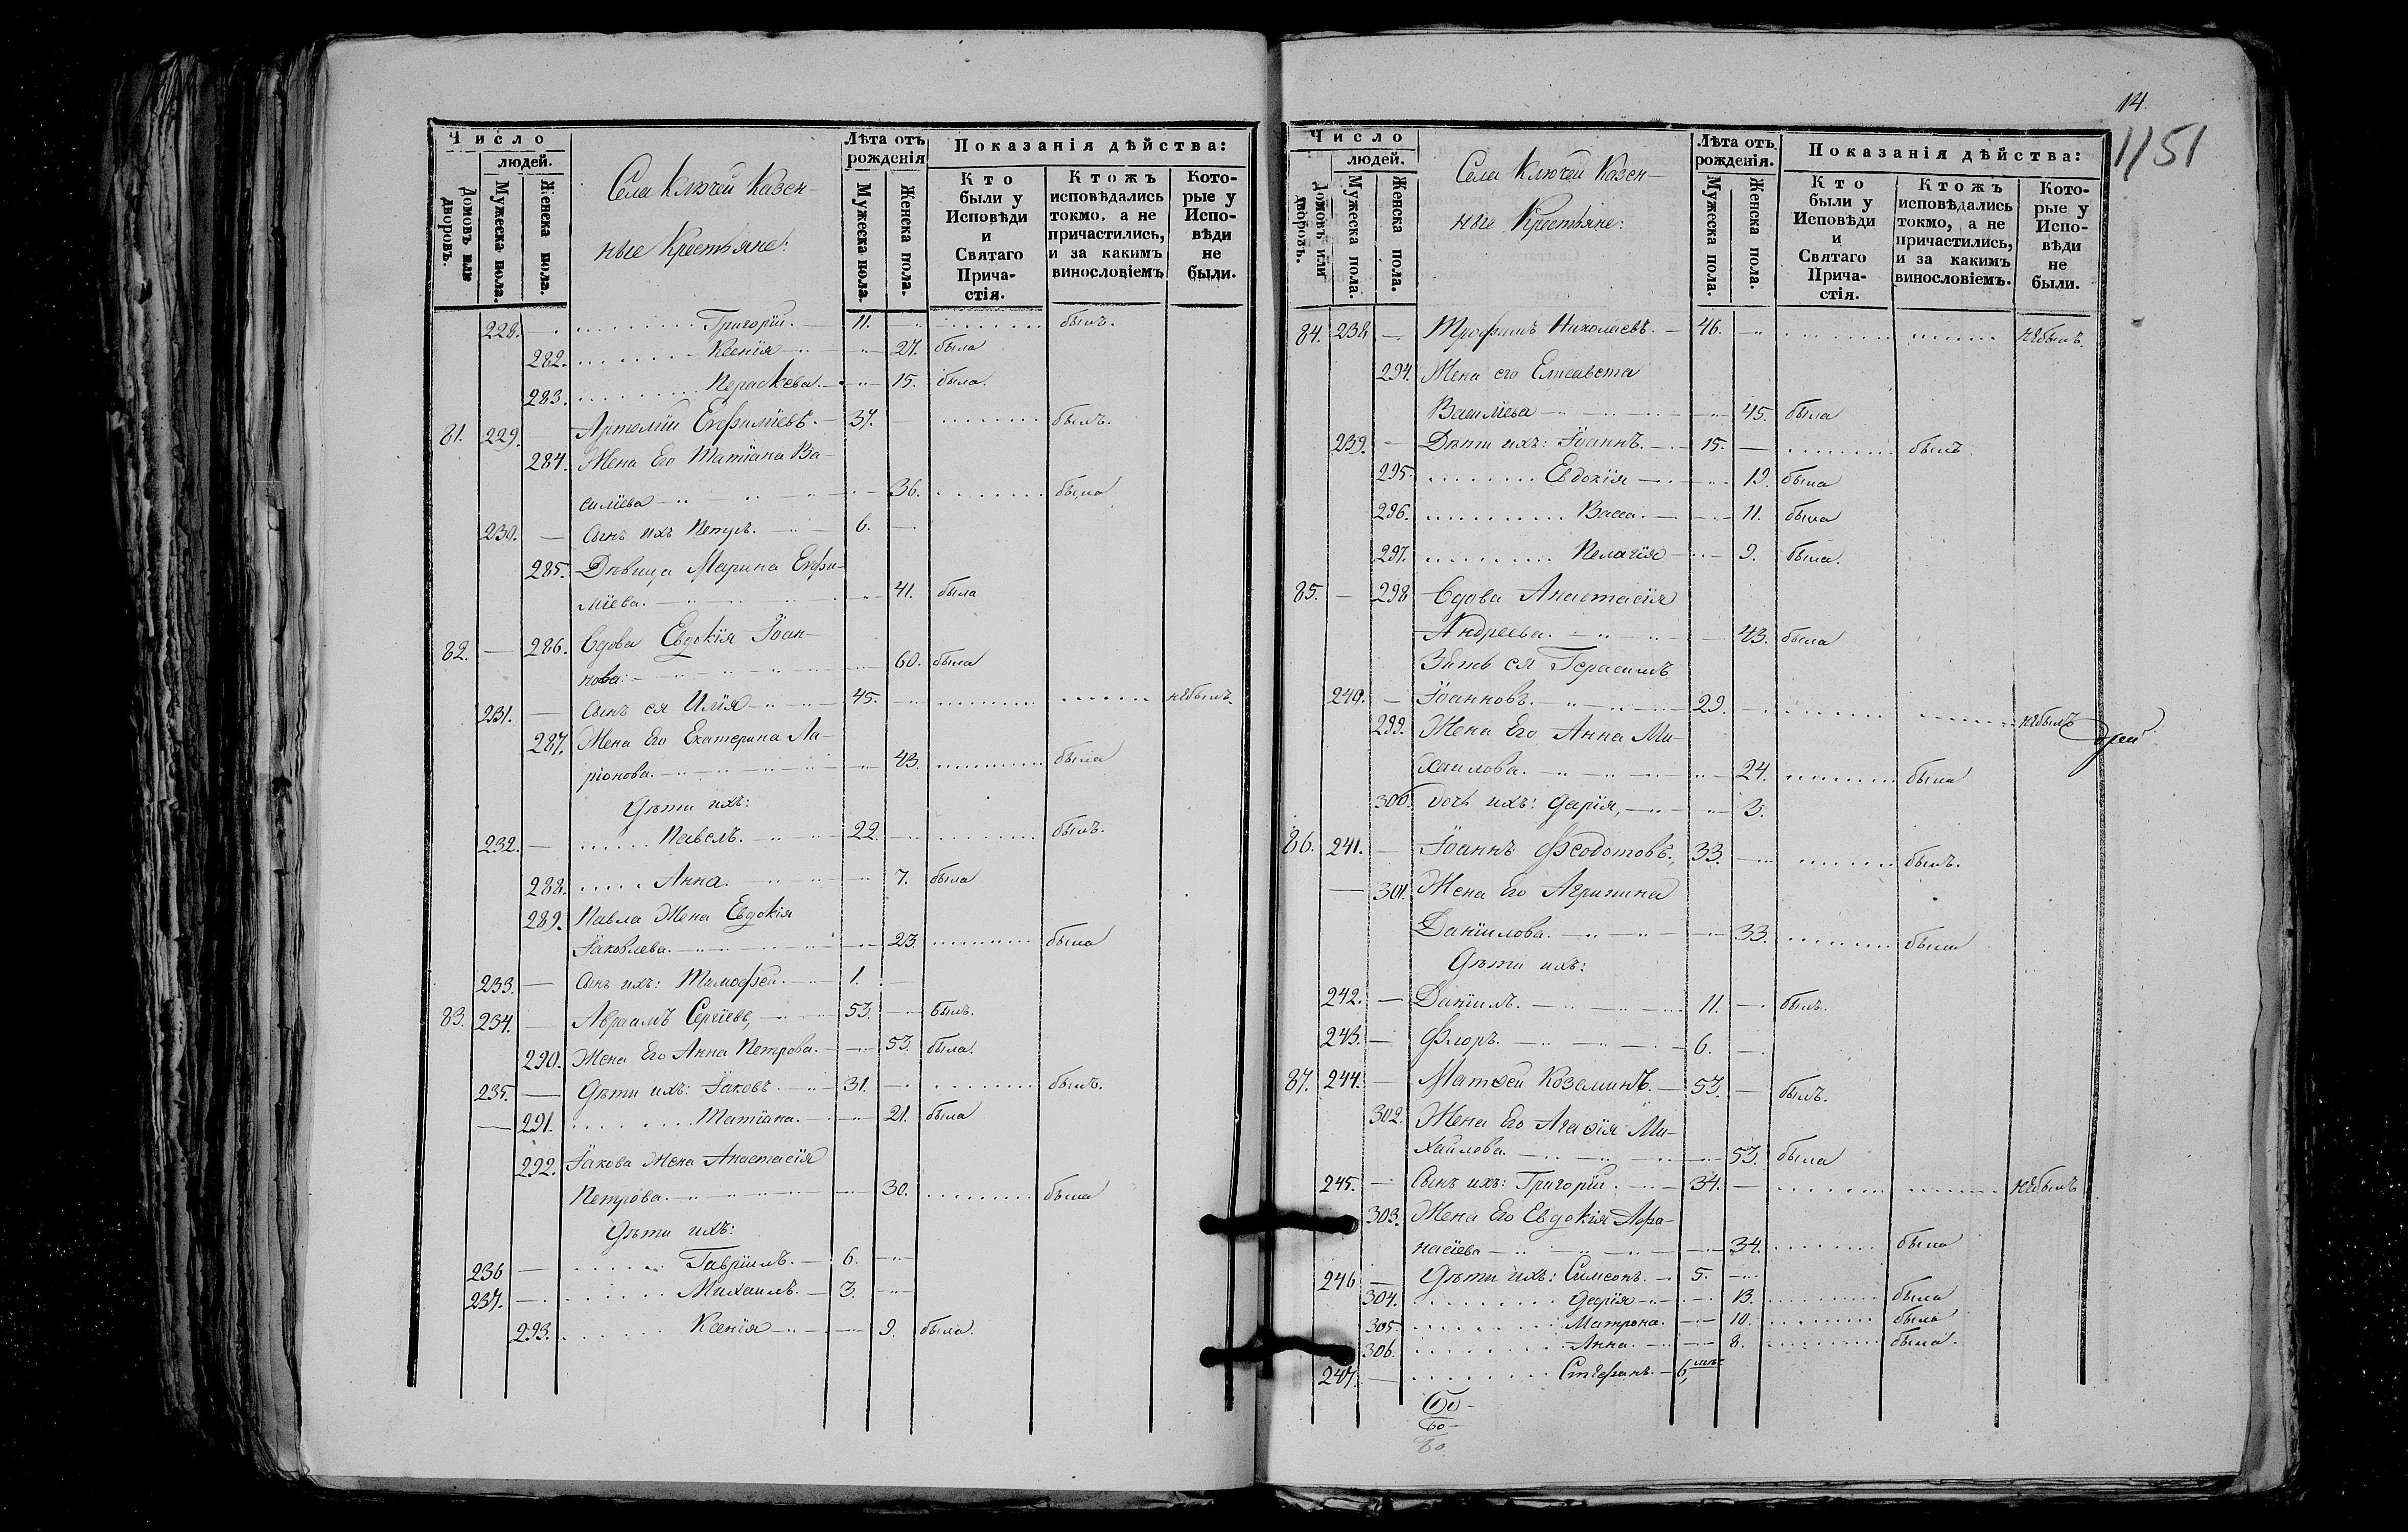 Число
людей.
Домовъ или дворовъ.
Мужеска пола.
Женска пола.
Села Ключей Казен-
ные Крестьяне:
Лѣта отъ рожденія
Мужеска пола.
Женска пола.
Показанія дѣйства:
Кто были у Исповѣди и Святаго Прича-стія.
Ктожъ исповѣдались токмо, а не причастились, и за какимъ винословіемъ
Кото-рые у Испо-вѣди не были.
228. — Григорій. — 11. былъ.
282. Ксенія — 27. была
283. Параскева. — 15. была.
81. 229. — Артемій Евфиміевъ. — 37. — былъ.
284. Жена Его Татіана Ва-
силіева — 36. была
230. — Сынъ ихъ Петръ. — 6. —
285. Дѣвица Марина Евфи-
міева. — 41. была
82. — 286. Вдова Евдокія Іоан-
нова: — 60. была
231. — Сынъ ея Илія — 45. — небылъ
287. Жена Его Екатерина Ла-
ріонова. — 43. была
Дѣти ихъ:
232. — Павелъ. — 22. — былъ.
288. Анна. — 7. была
289. Павла Жена Евдокія
Іаковлева. — 23. была
233. — Сынъ ихъ: Тимофей. — 1. —
83. 234. — Авраамъ Сергіевъ, — 53. — былъ.
290. Жена Его Анна Петрова. — 53. была.
235. — Дѣти ихъ: Іаковъ. — 31. — былъ.
— 291. Татіана. — 21. была
292. Іакова Жена Анастасія
Петрова. — 30. была
Дѣти ихъ:
236 — Гавріилъ. — 6. —
237. — Михаилъ. — 3. —
293. Ксенія — 9. была.
14.
1151
Число
людей.
Домовъ или дворовъ.
Мужеска пола.
Женска пола.
Села Ключей Казен-
ные Крестьяне:
Лѣта отъ рожденія.
Мужеска пола.
Женска пола.
Показанія дѣйства:
Кто были у Исповѣди и Святаго Прича-стія.
Ктожъ исповѣдались токмо, а не причастились, и за какимъ винословіемъ.
Кото-рые у Испо-вѣди не были.
84. 238 — Трофимъ Николаевъ. — 46. — небылъ.
294. Жена его Елисавета
Василіева — 45. была
239. — Дѣти ихъ: Іоаннъ. — 15. — былъ
295. Евдокія — 19. была
296. Васса. — 11. была
297. Пелагія — 9. была.
85. — 298 Вдова Анастасія
Андреева. — 43. была
Зять ея Герасимъ
240. — Іоанновъ. — 29. — небылъ
299. Жена Его Анна Ми-
хаилова. — 24. была
300. дочь ихъ: Дарія, — 3.
86. 241. — Іоаннъ Феодотовъ. 33. — былъ.
— 301. Жена Его Агрипина
Даніилова. — 33. была
Дѣти ихъ:
242. — Даніилъ. — 11. — былъ.
243. — Флоръ. — 6. —
87. 244. — Матѳей Козминъ. — 53. — былъ.
302. Жена Его Агаѳія Ми-
хайлова. — 53. была
245. — Сынъ ихъ: Григорій. — 34. — небылъ
303. Жена Его Евдокія Афа-
насіева — 34. была
246 — Дѣти ихъ: Симеонъ. — 5. —
304. Дарія — 13. была
305. Матрона. — 10. была
306. Анна. — 8. была.
247. — Стефанъ. — 6